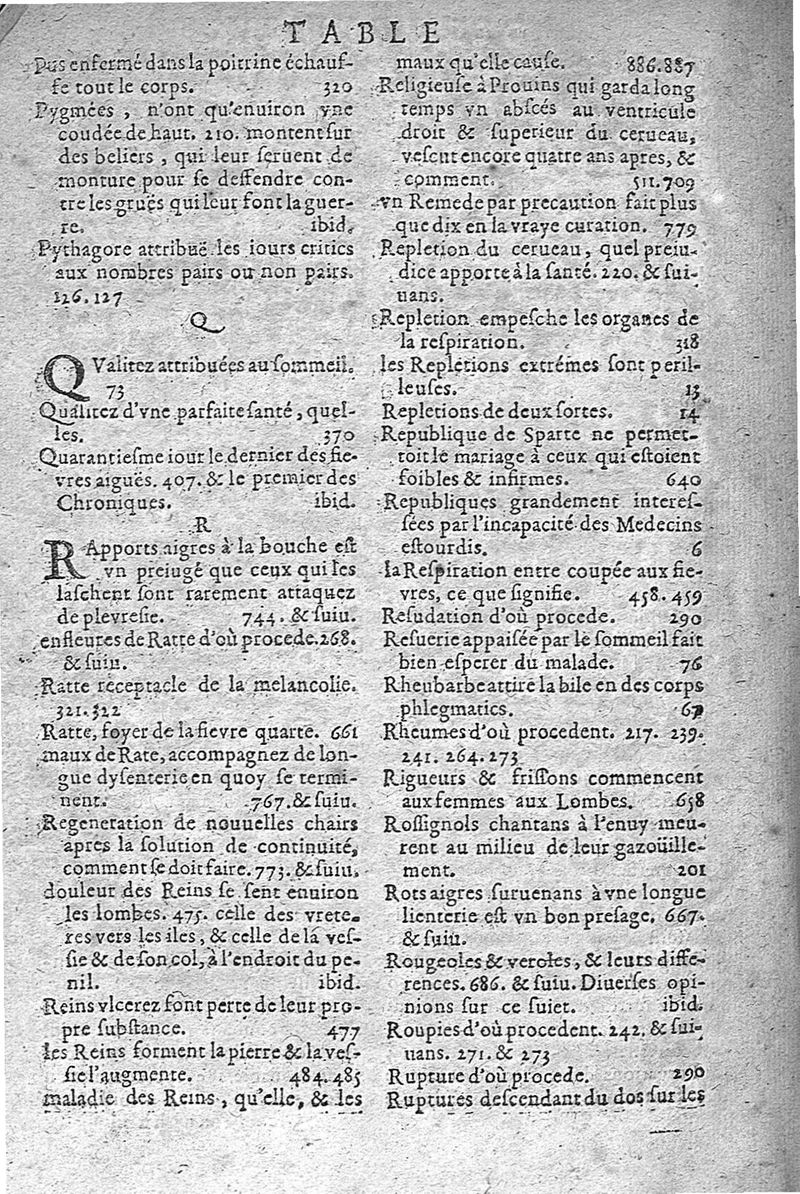 TABLE
Pus enfermé dans la poitrine échauf-
fe tout le corps. 320
Pygmées, n'ont qu'enuiron vne
coudée de haut. 210. montent sur
des beliers, qui leur seruent de
monture pour se deffendre con-
tre les gruës qui leur font la guer-
re. ibid.
Pythagore attribuë les iours critics
aux nombres pairs ou non pairs.
126.127
Q
QValitez attribuées au sommeil.
73
Qualitez d'vne parfaite santé, quel-
les. 370
Quarantiesme iour le dernier des fie-
vres aiguës. 407. & le premier des
Chroniques. ibid.
R
RApports aigres à la bouche est
vn preiugé que ceux qui les
laschent sont rarement attaquez
de plevresie. 744. & suiu.
enfleures de Ratte d'où procede. 268.
& suiu.
Ratte receptacle de la melancolie.
321.322
Ratte, foyer de la fievre quarte. 661
maux de Rate, accompagnez de lon-
gue dysenterie en quoy se termi-
nent. 767. & suiu.
Regeneration de nouuelles chairs
apres la solution de continuité,
comment se doit faire. 773. & suiu.
douleur des Reins se sent enuiron
les lombes. 475. celle des vrete-
res vers les iles, & celle de la ves-
sie & de son col, à l'endroit du pe-
nil. ibid.
Reins vlcerez font perte de leur pro-
pre substance. 477
les Reins forment la pierre & la ves-
sie l'augmente. 484.485
maladie des Reins, qu'elle, & les
maux qu'elle cause. 886.887
Religieuse à Prouins qui garda long
temps vn abscés au ventricule
droit & superieur du cerueau,
vescut encore quatre ans apres, &
comment. 511.709
vn Remede par precaution fait plus
que dix en la vraye curation. 779
Repletion du cerueau, quel preiu-
dice apporte à la santé. 220. & sui-
uans.
Repletion empesche les organes de
la respiration. 318
les Repletions extrémes sont peril-
leuses. 13
Repletions de deux sortes. 14
Republique de Sparte ne permet-
toit le mariage à ceux qui estoient
foibles & infirmes. 640
Republiques grandement interes-
sées par l'incapacité des Medecins
estourdis. 6
la Respiration entre coupée aux fie-
vres, ce que signifie. 458.459
Resudation d'où procede. 290
Resuerie appaisée par le sommeil fait
bien esperer du malade. 76
Rheubarbe attire la bile en des corps
phlegmatics. 67
Rheumes d'où procedent. 217. 239.
241. 264. 273
Rigueurs & frissons commencent
aux femmes aux Lombes. 658
Rossignols chantans à l'enuy meu-
rent au milieu de leur gazoüille-
ment. 201
Rots aigres suruenans à vne longue
lienterie est vn bon presage. 667.
& suiu.
Rougeoles & veroles, & leurs diffe-
rences. 686. & suiu. Diuerses opi-
nions sur ce suiet. ibid.
Roupies d'où procedent. 242. & sui-
uans. 271. & 273
Rupture d'où procede. 290
Ruptures descendant du dos sur les